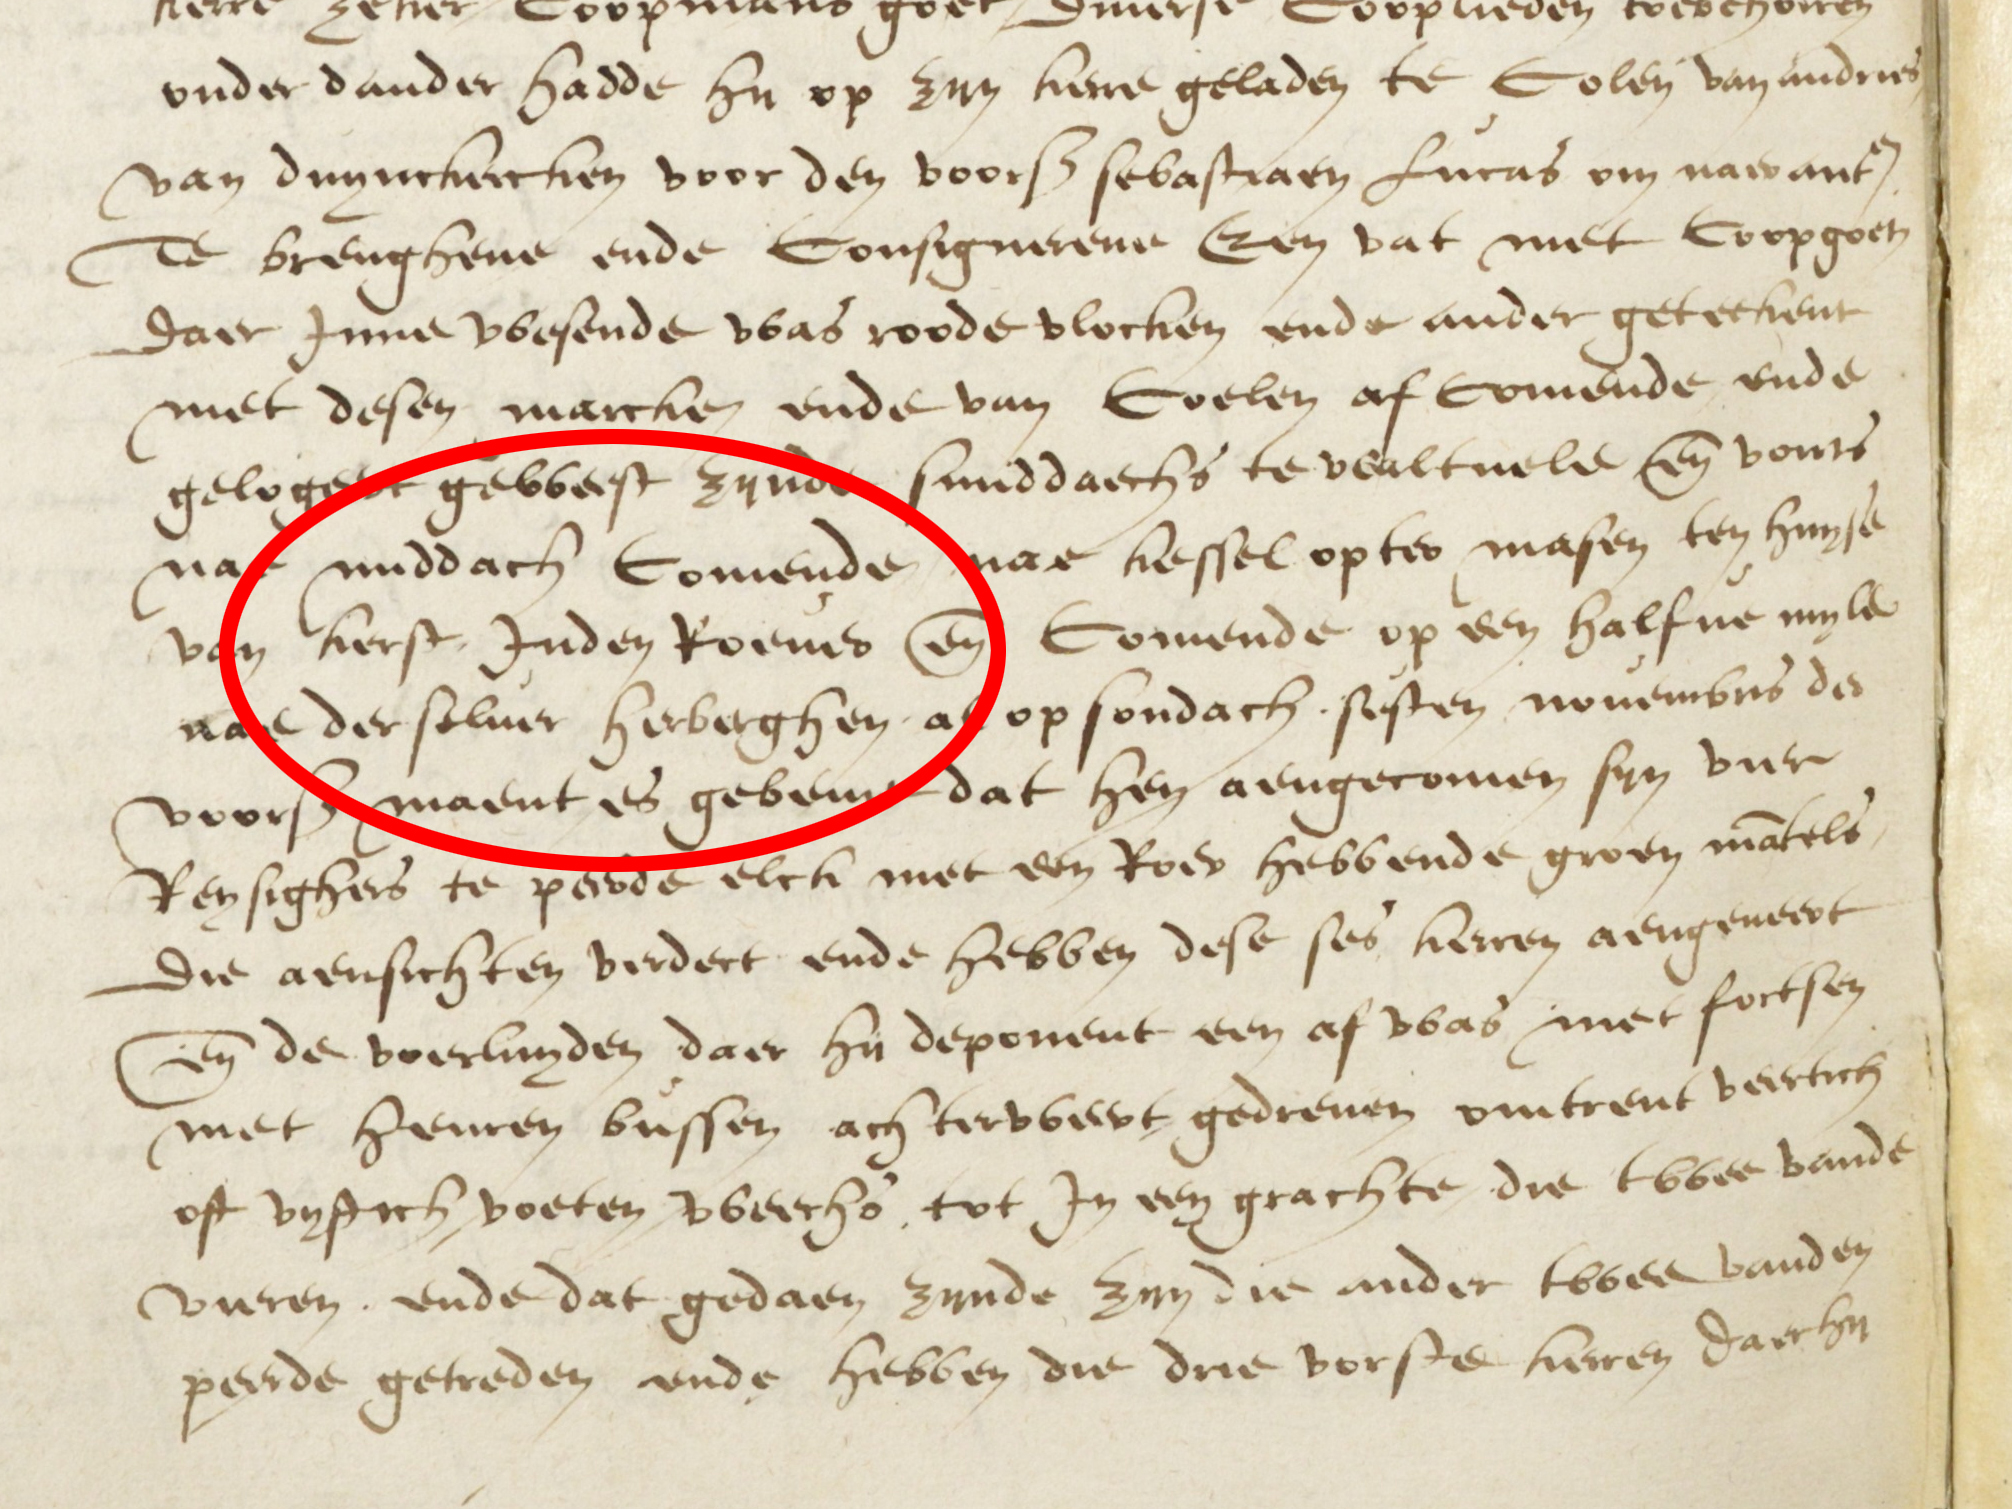 kerre zeker Coopmans goet diverse Cooplieden toebehoiren
onder dander hadde hij op zijn kerre geladen te Colen van andries
van duynckercken voor den voors sebastiaen Lucas om nae antw
Te brenghene ende Consignerene Een vat met Coopgoet
daer Inne wesende was roode vlocken ende ander geteekent
met desen marcken ende van Coelen af Comende ende
gelogeert geweest zijnde smiddaechs te en voirts
nae middach Comende nae kessel opter masen ten huyse
van kerst Inden Roever en Comende op een halfve myle
nae der selver herberghen al op sondach sesten novembris der
voors maent es gebeurt dat hen aengecomen syn vier
Reysighers te peerde elck met een Roer hebbende groen mantels
die aensichten verdect ende hebben dese ses kerren aengeveert
en de voerluyden daer hij deponent een af was met fortsen
met heuren bussen achterweert gedreven omtrent veertich
oft vyftich voeten weechs tot In een grachte die twee vande
vieren ende dat gedaen zijnde zijn die ander twee vanden
peerde getreden ende hebben die drie vorste kerren daer hij